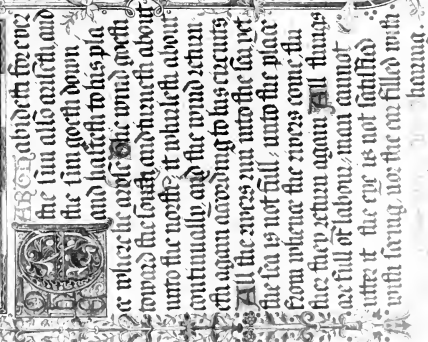 abideth for ever
the sun also ariseth, and
the sun goeth down
and hasteth to his pla
ce where he arose The wynd goeth
toward the south and turneth about
unto the north, it whirleth about
continually, and the wynd return
eth again according to his circuits
All the rivers run unto the sea yet
the sea is not full, unto the place
from whence the rivers come thi
ther they return again All things
are full of labour, man cannot
utter it the eye is not satisfied
with seeing, nor the ear filled with
hearing.